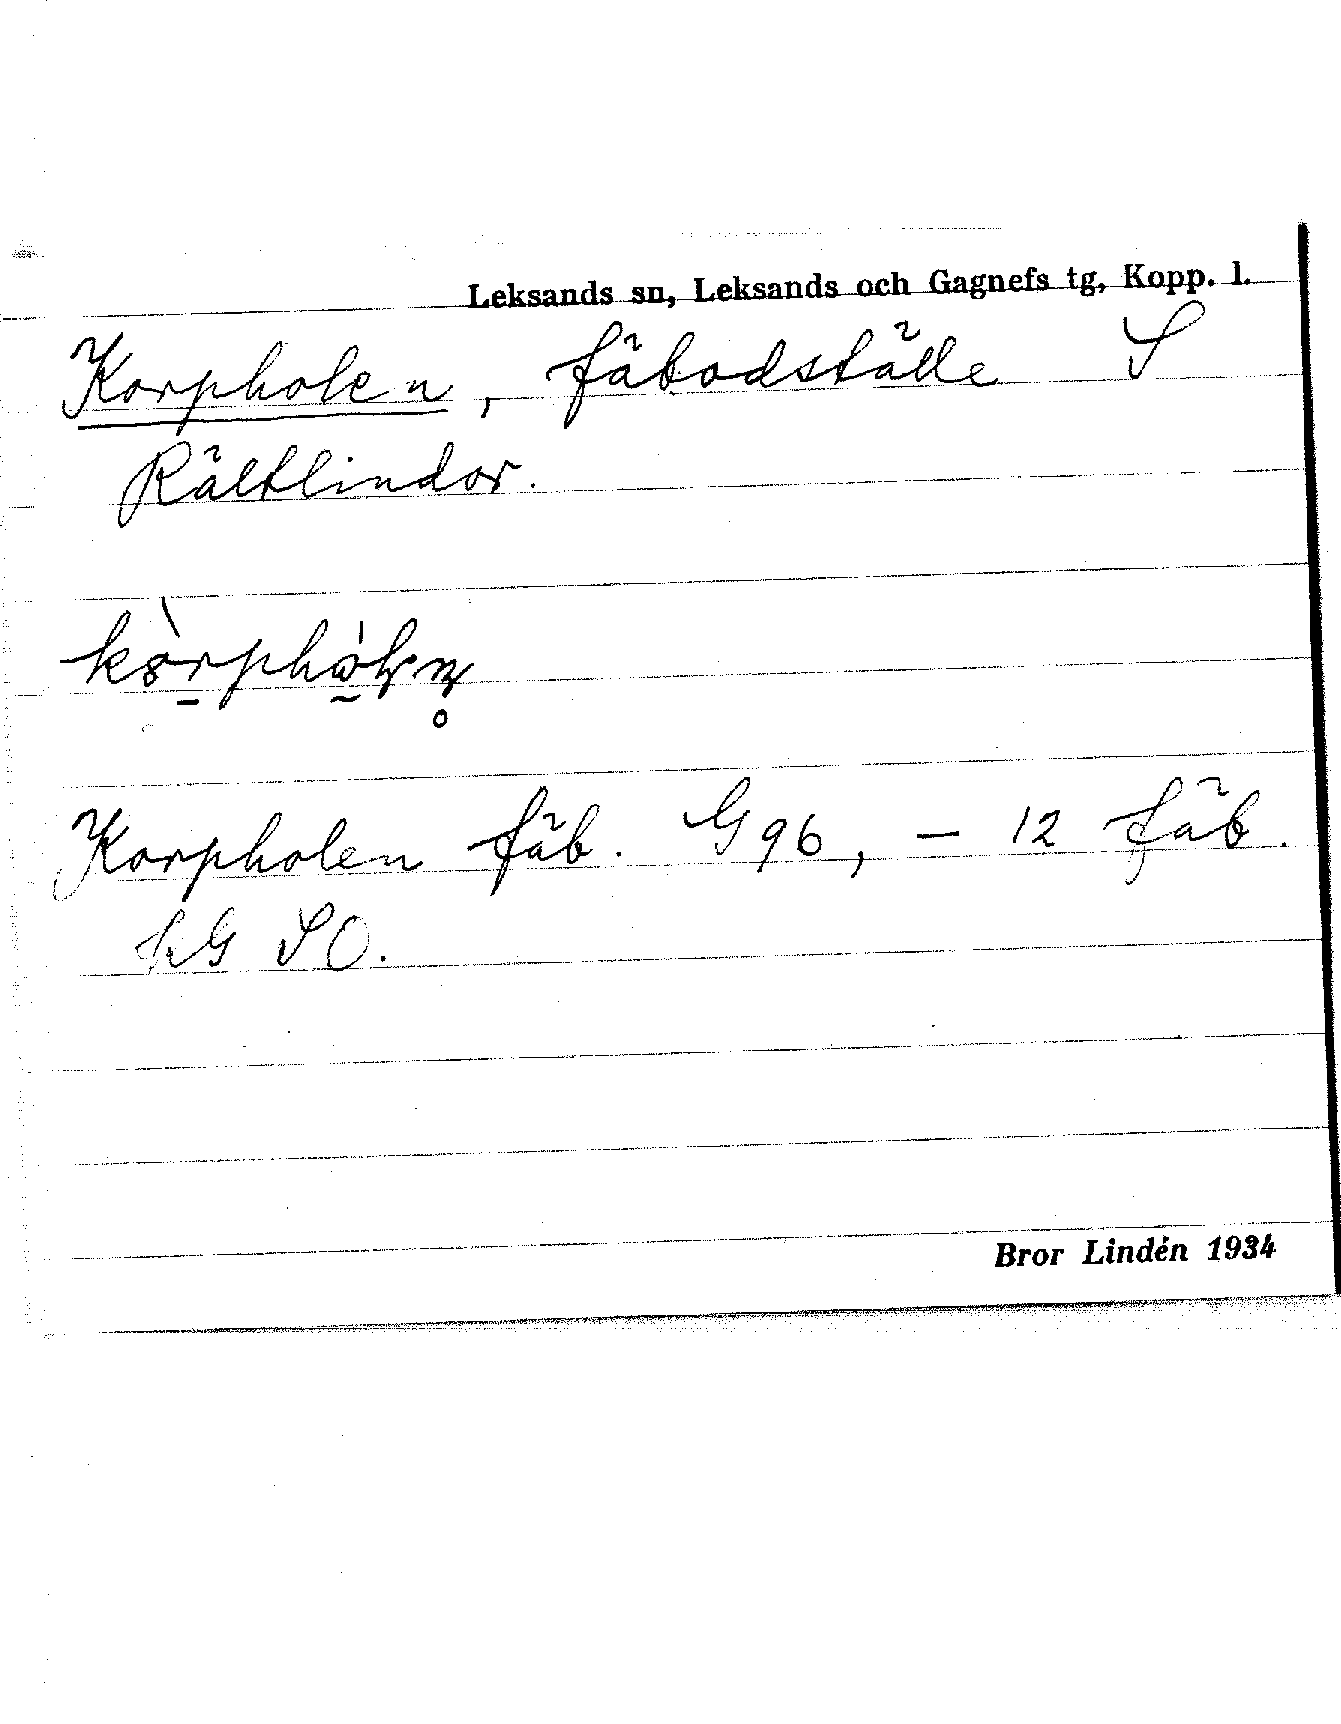 Leksands sn, Leksands och Gagnefs tg, Kopp. l.
Korpholen, fäbodställe S
Rältlindor.
Korpholen fäb. G96, – 12 fäb.
hG SO.
Bror Lindén 1934